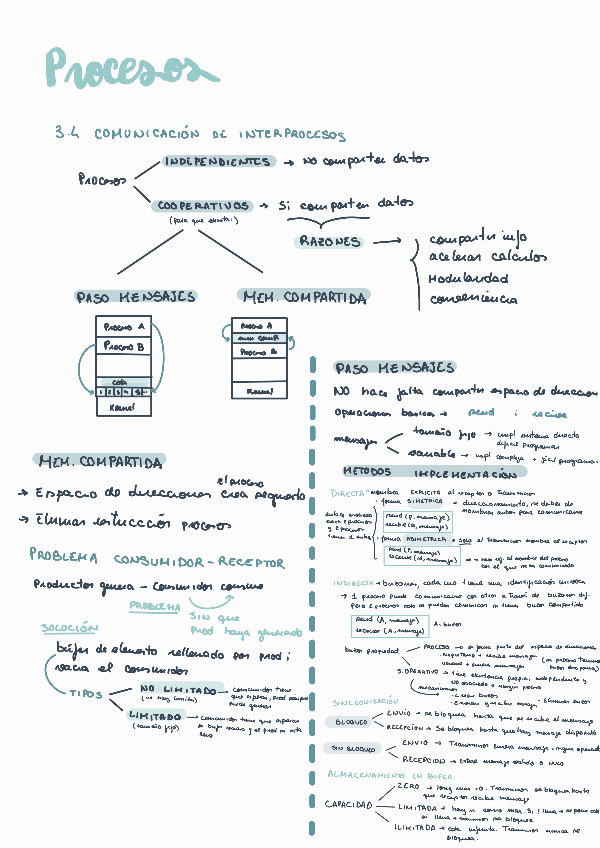 Procesos
3.4 COMUNICACIÓN DE INTERPROCESOS
Procesos
INDEPENDIENTES → No comparten datos
COOPERATIVOS → Si comparten datos
RAZONES →
compartir info
acelerar calculos
Modularidad
conveniencia
PASO MENSAJES
MEM. COMPARTIDA
Proceso A
Proceso B
cola
Kernel
Proceso A
mem comp.
Proceso B
Kernel
MEM. COMPARTIDA
el proceso
→ Espacio de direcciones crea segmento
→ Eliminar restricción procesos
PROBLEMA CONSUMIDOR-RECEPTOR
Productor genera - Consumidor consume
PROBLEMA
SIN que
Prod haya generado
SOLUCIÓN
búfer de elemento rellenado por prod i
vacia el consumidor
TIPOS
NO LIMITADO → consumidor tiene
(no hay limite)
LIMITADO → consumidor tiene que esperar
(tamaño fijo)
PASO MENSAJES
NO hace falta compartir espacio de direccion
operaciones basicas → send i recive
mensajes
tamaño fijo → impl sistema directo
dificil programar
variable → impl compleja + facil programar
METODOS IMPLEMENTACIÓN
DIRECTA → nombra EXPLICITA al receptor o Transmisor
forma SIMETRICA → direccionamiento, se deben de
nombrar ambos para comunicarse
send (P, mensaje)
recibe (Q, mensaje)
forma ASIMETRICA → solo el transmisor nombra al receptor
send (P, mensaje)
con el que se ha comunicado
INDIRECTA → buzones, cada uno tiene una identificación univoca
→ 1 proceso puede comunicarse con otros a través de buzones dif.
pero 2 procesos solo se pueden comunicar si tienen buzon compartido
send (A, mensaje)
receive (A, mensaje)
A: buzon
buzon propiedad
PROCESO → es parte del espacio de direcciones
S. OPERATIVO → tiene existencia propia, independiente y
No asociado a ningun proceso
mecanismos
- Crear buzon
- Enviar y recibir mensajes
- Eliminar buzon
SINCRONIZACIÓN
BLOQUEO
ENVIO → se bloquea hasta que se recibe el mensaje
RECEPCION → Se bloquea hasta que hay mensaje disponible
SIN BLOQUEO
ENVIO → Transmisor envia mensaje y sigue operando
RECEPCION → extrae mensaje valido o NULO
ALMACENAMIENTO EN BUFER
CAPACIDAD
ZERO → long max = 0. Transmisor se bloquea hasta
que receptor recibe mensaje
LIMITADA → hay n como max.
ILIMITADA → cola infinita. Transmisor nunca se
bloquea.